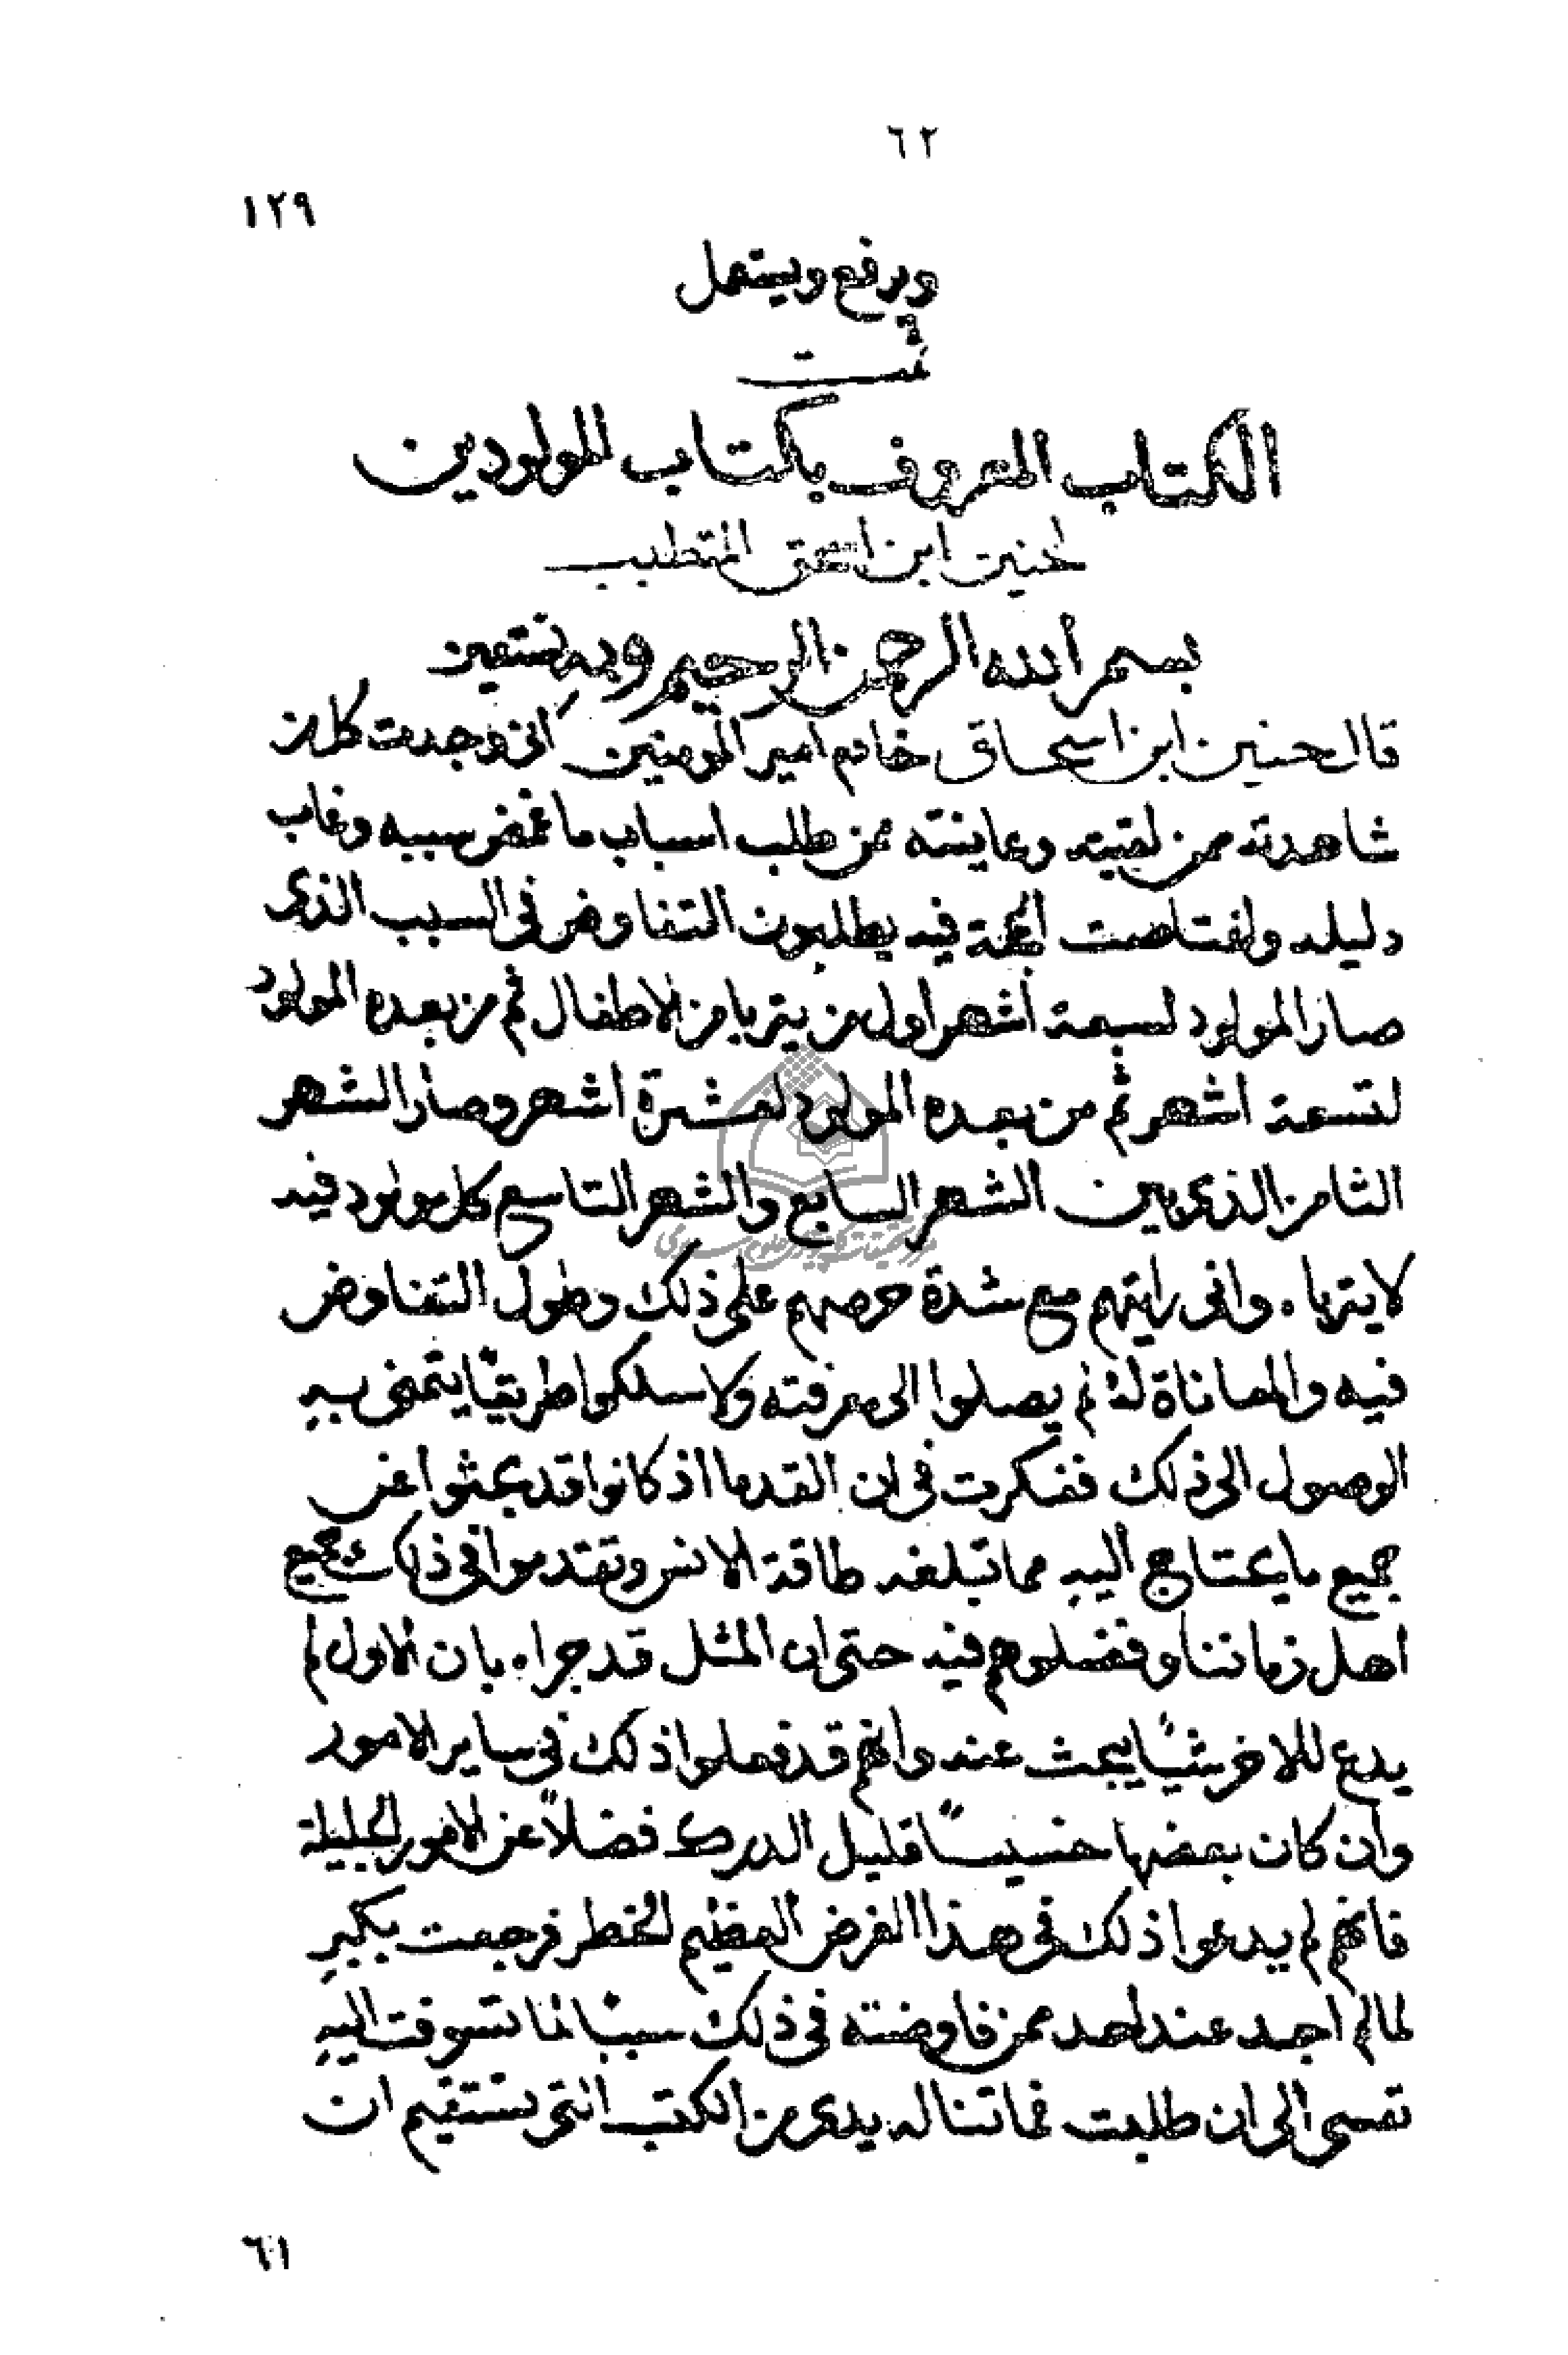 ٦٢
١٢٩
ويرفع ويستعمل
تمت
الكتاب المعروف بكتاب المولودين
لحنين ابن اسحق المتطبب
بسم الله الرحمن الرحيم وبه نستعين
قال حنين ابن اسحاق خادم امير المومنين انى وجدت كل من
شاهدته ممن لقيته وعاينته ممن طلب اسباب ما غمض سببه وغاب
دليله واعتاصت الحجة فيه يطلبون التفاوض فى السبب الذى
صار المولود لسبعة أشهر اول من يتربا من الاطفال ثم من بعده المولود
لتسعة اشهر ثم من بعده المولود لعشرة اشهر وصار الشهر
الثامن الذى بين الشهر السابع والشهر التاسع كل مولود فيه
لا يتربا . وانى رايتهم مع شدة حرصهم على ذلك وطول التفاوض
فيه والمعاناة له لم يصلوا الى معرفته ولا سلكوا طريقًا يتمنى به
الوصول الى ذلك ففكرت فى ان القدما اذ كانوا قد بحثوا عن
جميع ما يحتاج اليه مما تبلغه طاقة الانس وتقدموا فى ذلك جميع
اهل زماننا وفضلوهم فيه حتى ان المثل قد جرا . بان الاول لم
يدع للاخر شيًا يبحث عنه وانهم قد فعلوا ذلك فى ساير الامور
وان كان بعضها خسيسًا قليل الدرك فضلاً عن الامور الجليلة
فانهم لم يدعوا ذلك فى هذا الغرض العظيم الخطر فرجعت
لما لم اجد عند احد ممن فاوضته فى ذلك سببًا لما تشوقت اليه
نفسى الى ان طلبت فما تناله يدى من الكتب التى تستقيم ان
٦١